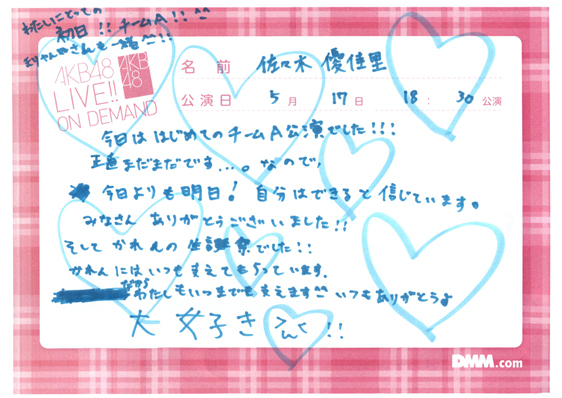 わたしにとっての
初日!!チームA!!^^
まりやんぬさんも一緒^^!!
AKB48
LIVE!!
ON DEMAND
AKB
48
名 前 佐々木 優佳里
公演日 5月 17日 18:30公演
今日ははじめてのチームA公演でした!!!
正直まだまだです...。なので、
今日よりも明日!自分はできると信じています。
みなさんありがとうございました!!
そしてかれんの生誕祭でした!!
かれんにはいつも支えてもらっています。
だから
わたしもいつまでも支えます^^いつもありがとうよ
大好き !!
DMM.com